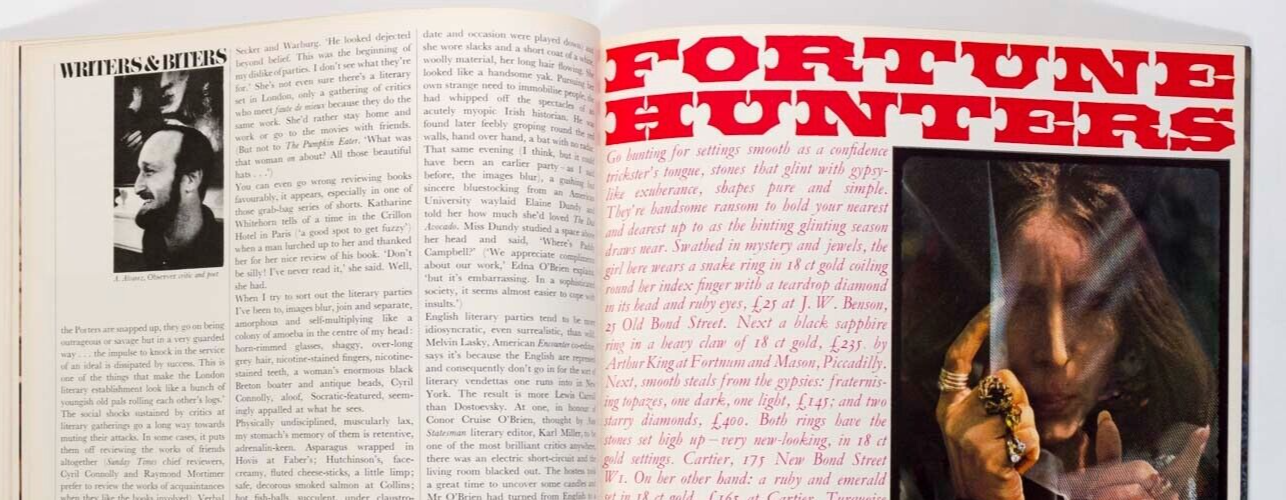 WRITERS & BITERS
A. Alvarez, Observer critic and poet
the Porters are snapped up, they go on being
outrageous or savage but in a very guarded
way . . . the impulse to knock in the service
of an ideal is dissipated by success. This is
one of the things that make the London
literary establishment look like a bunch of
youngish old pals rolling each other's logs.'
The social shocks sustained by critics at
literary gatherings go a long way towards
muting their attacks. In some cases, it puts
them off reviewing the works of friends
altogether (Sunday Times chief reviewers,
Cyril Connolly and Raymond Mortimer
prefer to review the works of acquaintances
when they like the books involved). Verbal
Secker and Warburg. 'He looked dejected
beyond belief. This was the beginning of
my dislike of parties. I don't see what they're
for.' She's not even sure there's a literary
set in London, only a gathering of critics
who meet faute de mieux because they do the
same work. She'd rather stay home and
work or go to the movies with friends.
(But not to The Pumpkin Eater. 'What was
that woman on about? All those beautiful
hats . . .')
You can even go wrong reviewing books
favourably, it appears, especially in one of
those grab-bag series of shorts. Katharine
Whitehorn tells of a time in the Crillon
Hotel in Paris ('a good spot to get fuzzy')
when a man lurched up to her and thanked
her for her nice review of his book. 'Don't
be silly! I've never read it,' she said. Well,
she had.
When I try to sort out the literary parties
I've been to, images blur, join and separate,
amorphous and self-multiplying like a
colony of amoeba in the centre of my head:
horn-rimmed glasses, shaggy, over-long
grey hair, nicotine-stained fingers, nicotine-
stained teeth, a woman's enormous black
Breton boater and antique beads, Cyril
Connolly, aloof, Socratic-featured, seem-
ingly appalled at what he sees.
Physically undisciplined, muscularly lax,
my stomach's memory of them is retentive,
adrenalin-keen. Asparagus wrapped in
Hovis at Faber's; Hutchinson's, face-
creams, fluted cheese-sticks, a little limp;
safe, decorous smoked salmon at Collins;
hot fish-balls, succulent, under claustro-
date and occasion were played down; and
she wore slacks and a short coat of a white,
woolly material, her long hair flowing. She
looked like a handsome yak. Pursuing her
own strange need to immobilise people, she
had whipped off the spectacles of an
acutely myopic Irish historian. He was
found later feebly groping round the
walls, hand over hand, a bat with no radar.
That same evening (I think, but it could
have been an earlier party – as I said
before, the images blur), a gushing but
sincere bluestocking from an American
University waylaid Elaine Dundy and
told her how much she'd loved The Dud
Avocado. Miss Dundy studied a space above
her head and said, 'Where's Patrick
Campbell?' ('We appreciate compliments
about our work,' Edna O'Brien explains,
'but it's embarrassing. In a sophisticated
society, it seems almost easier to cope with
insults.')
English literary parties tend to be more
idiosyncratic, even surrealistic, than
Melvin Lasky, American Encounter co-editor,
says it's because the English are
and consequently don't go in for the sort of
literary vendettas one runs into in New
York. The result is more Lewis Carroll
than Dostoevsky. At one, in honour of
Conor Cruise O'Brien, thought by
Statesman literary editor, Karl Miller, to be
one of the most brilliant critics anywhere,
there was an electric short-circuit and the
living room blacked out. The hostess took
a great time to uncover some candles and
Mr O'Brien had turned from English
FORTUNE
HUNTERS
Go hunting for settings smooth as a confidence
trickster's tongue, stones that glint with gypsy-
like exuberance, shapes pure and simple.
They're handsome ransom to hold your nearest
and dearest up to as the hinting glinting season
draws near. Swathed in mystery and jewels, the
girl here wears a snake ring in 18 ct gold coiling
round her index finger with a teardrop diamond
in its head and ruby eyes, £25 at J. W. Benson,
25 Old Bond Street. Next a black sapphire
ring in a heavy claw of 18 ct gold, £235. by
Arthur King at Fortnum and Mason, Piccadilly.
Next, smooth steals from the gypsies: fraternis-
ing topazes, one dark, one light, £145; and two
starry diamonds, £400. Both rings have the
stones set high up – very new-looking, in 18 ct
gold settings. Cartier, 175 New Bond Street
W1. On her other hand: a ruby and emerald
set in 18 ct gold, £165 at Cartier. Turquoise